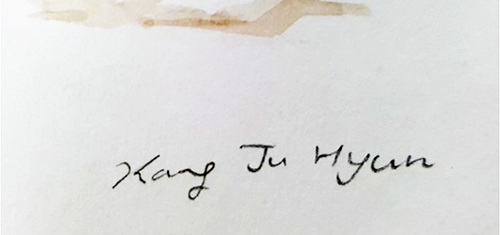 Kang Ju Hyun